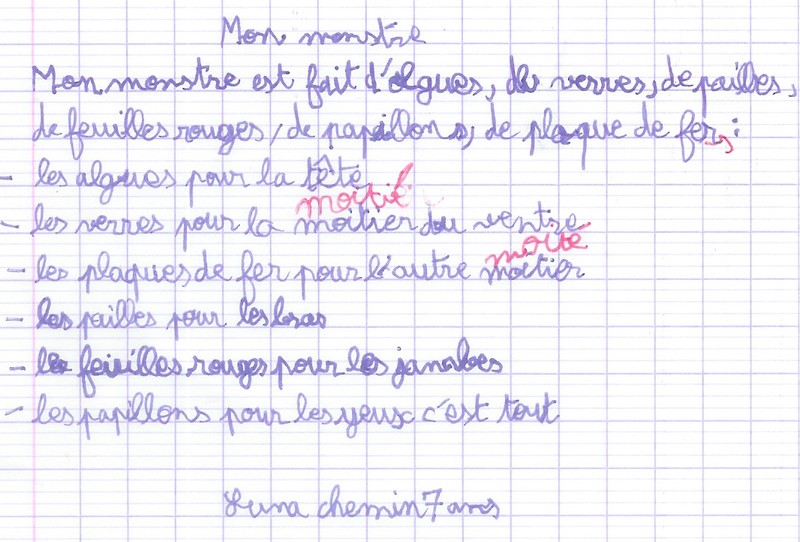 Mon monstre
Mon monstre est fait d'algues, de verres, de pailles,
de feuilles rouges, de papillons, de plaque de fer, :
- les algues pour la tête
moitié
- les verres pour la moitier du ventre
moitié
- les plaques de fer pour l'autre moitier
- les pailles pour les bras
- les feuilles rouges pour les jambes
- les papillons pour les yeux c'est tout
Luna chemin 7 ans